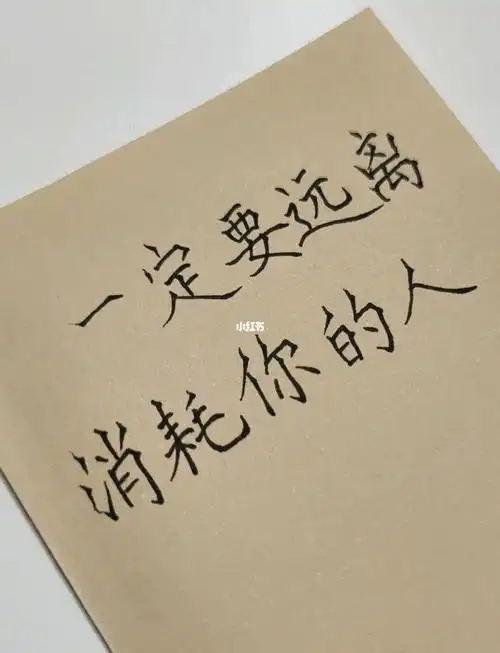 一定要远离
小红书
消耗你的人